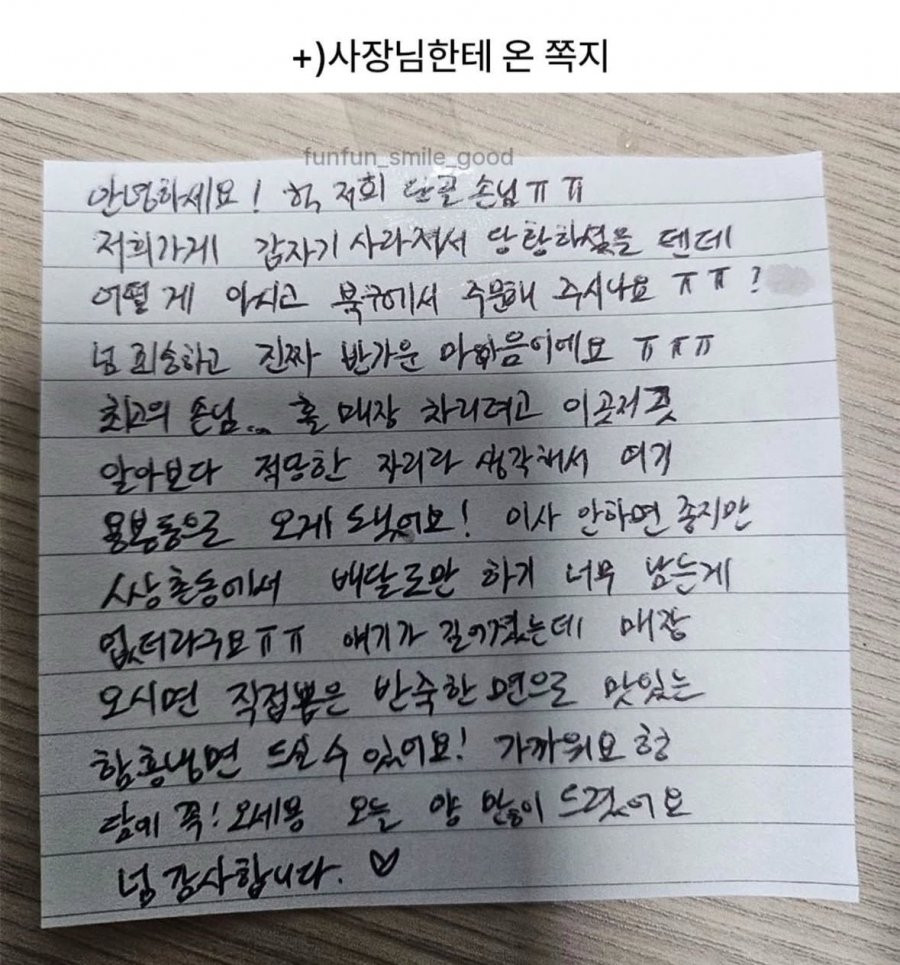 +)사장님한테 온 쪽지
funfun_smile_good
안녕하세요! 헉 저희 단골 손님ㅠㅠ
저희가게 갑자기 사라져서 당황하셨을 텐데
어떻게 아시고 북구에서 주문해 주시나요 ㅠㅠ?
넘 죄송하고 진짜 반가운 마음이에요 ㅠㅠㅠ
최고의 손님... 홀 매장 차리려고 이곳저곳
알아보다 적당한 자리라 생각해서 여기
용봉동으로 오게 되었어요! 이사 안하면 좋지만
상촌동에서 배달로만 하기 너무 남는게
없더라구요ㅠㅠ 얘기가 길어졌는데 매장
오시면 직접뽑은 반죽한 면으로 맛있는
함흥냉면 드실 수 있어요! 가까워요 헝
담에 꼭! 오세용 오늘 양 많이 드렸어요
넘 감사합니다. ♡